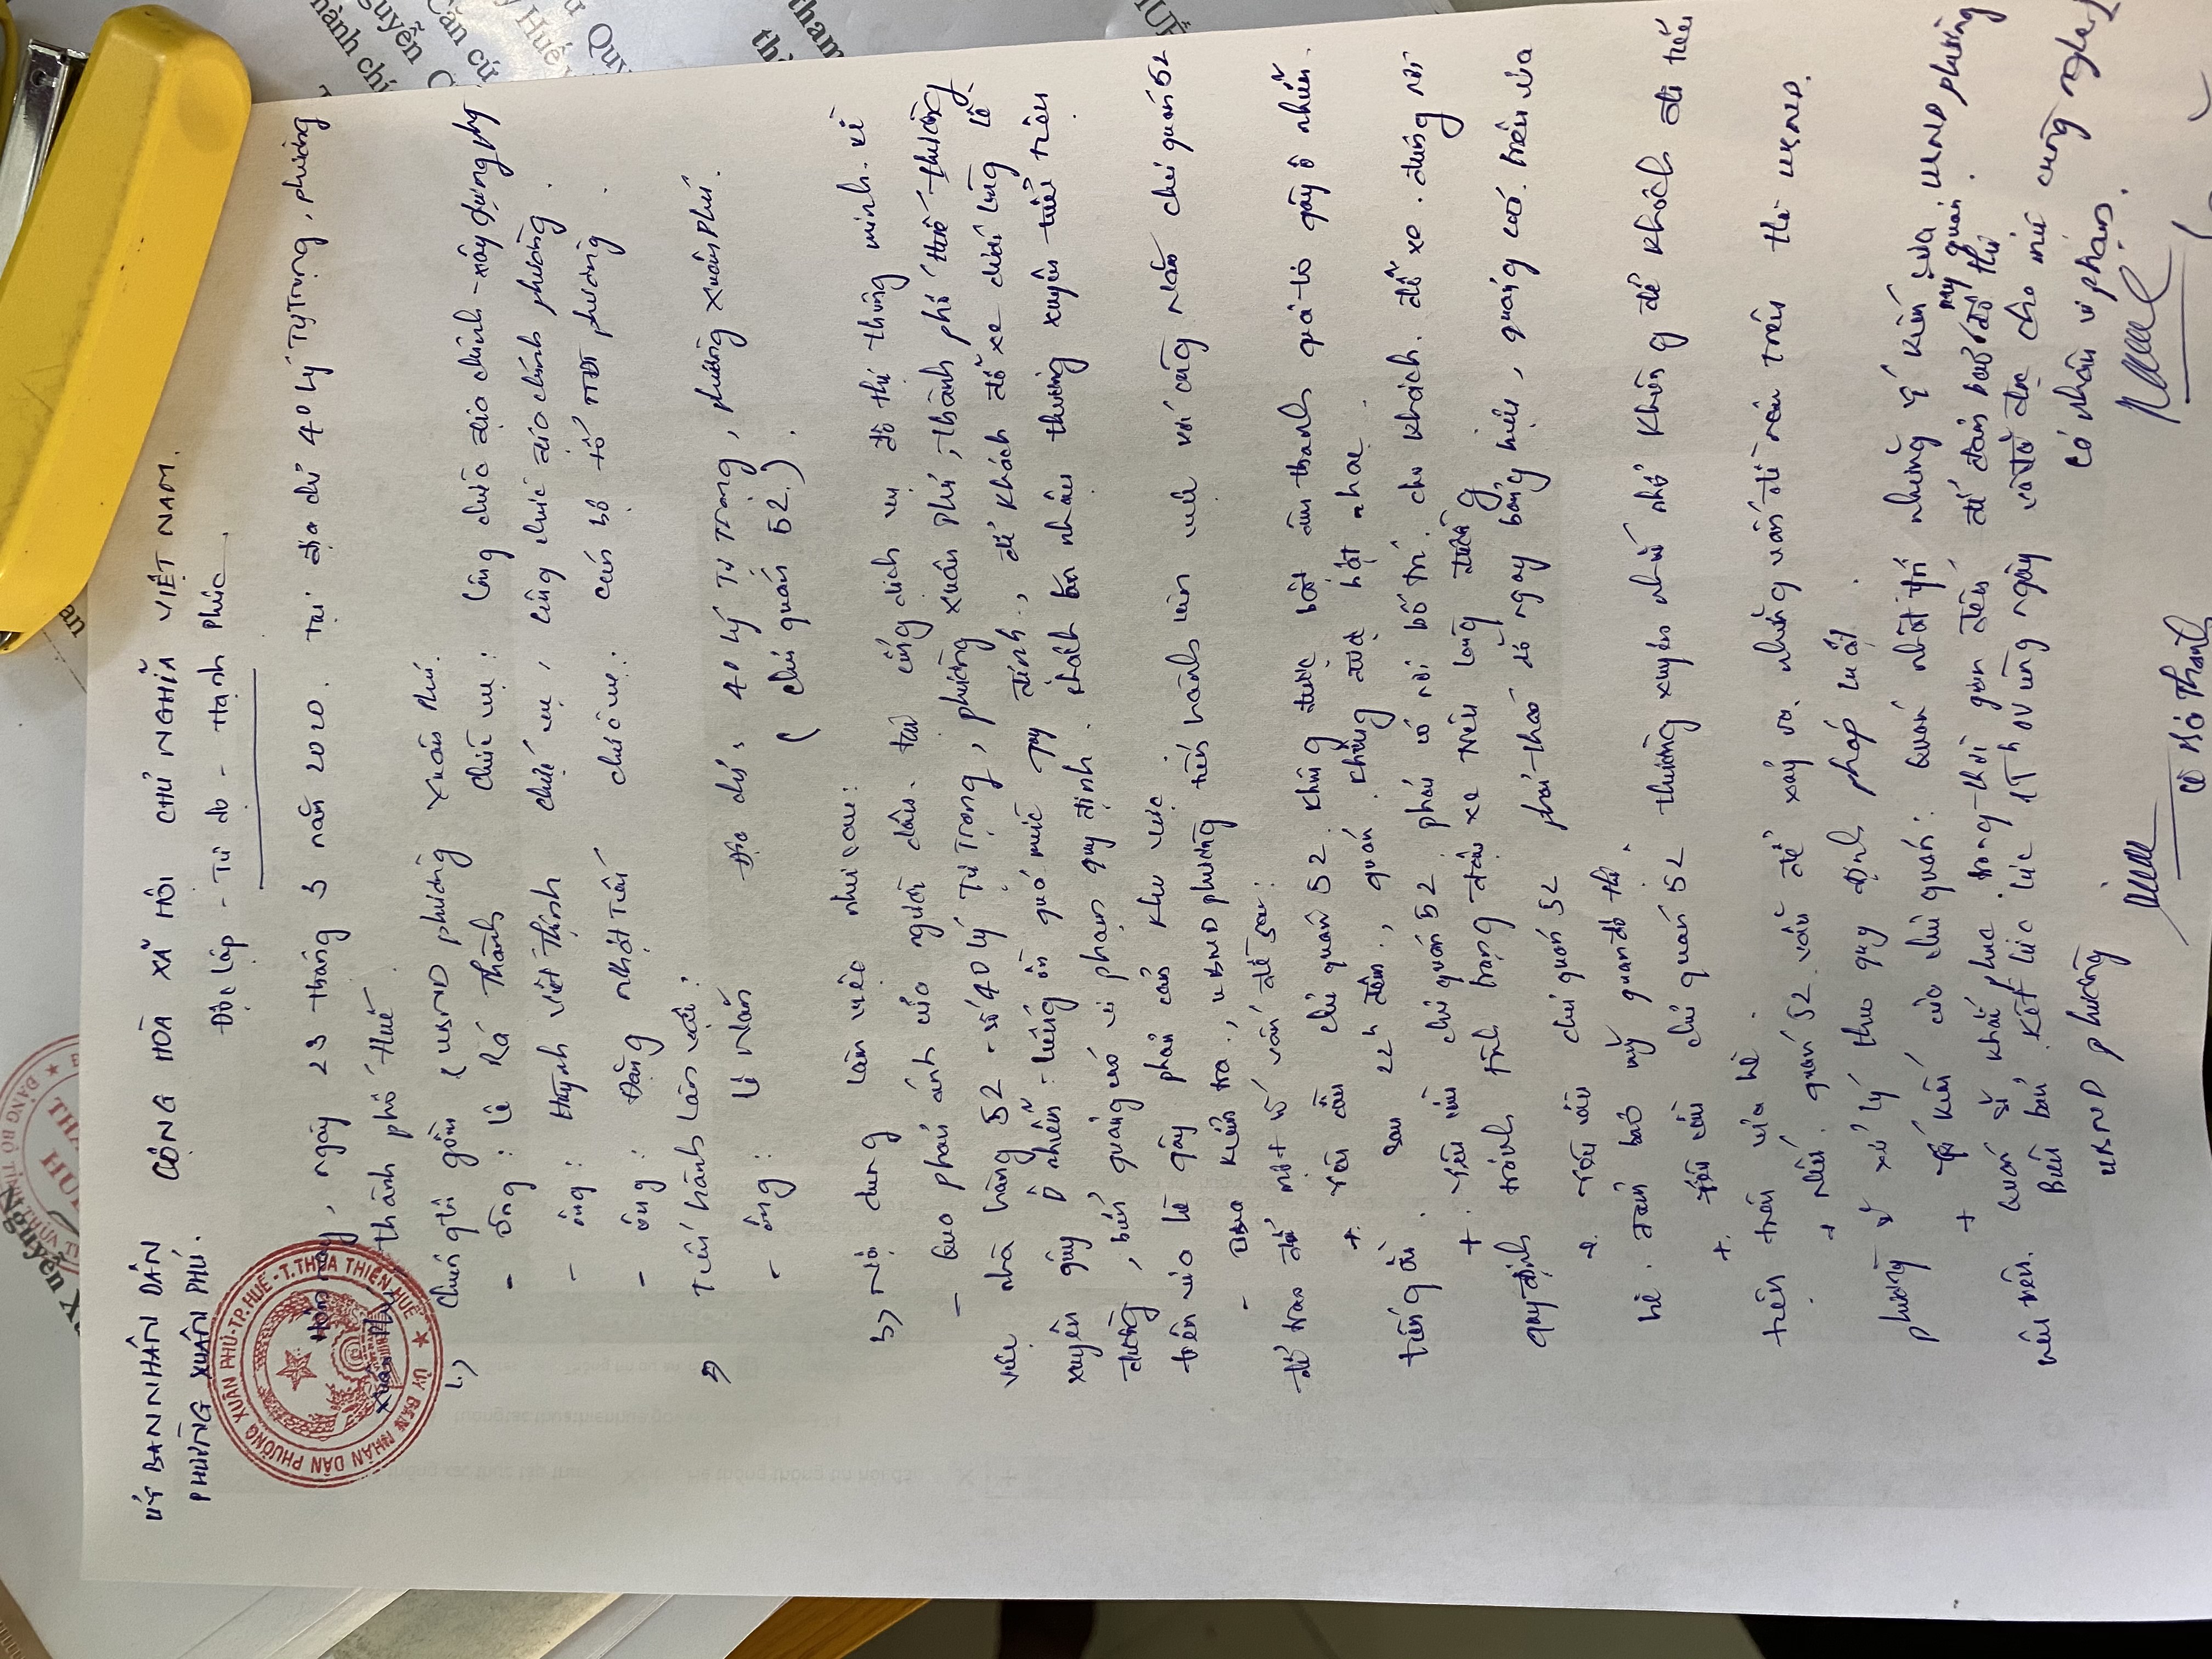 ỦY BAN NHÂN DÂN CỘNG HOÀ XÃ HỘI CHỦ NGHĨA VIỆT NAM.
PHƯỜNG XUÂN PHÚ. Độc lập - Tự do - Hạnh phúc
Hôm nay, ngày 23 tháng 5 năm 2020. tại địa chỉ 40 Lý Tự Trọng, phường
Xuân Phú thành phố Huế.
1.) Chúng tôi gồm (UBND phường Xuân Phú.
- Ông: Lê Bá Thành chức vụ: Công chức địa chính - xây dựng phường
- ông: Huỳnh Viết Thịnh chức vụ, công chức địa chính phường.
- ông: Đặng Nhật Tiến chức vụ. cán bộ tổ TTĐT phường.
2) Tiến hành làm việc:
- ông: Lê Mẫn Địa chỉ: 40 Lý Tự Trọng, phường Xuân Phú.
(chủ quán 52.)
3) Nội dung làm việc như sau:
- Qua phản ánh của người dân. tại cổng dịch vụ đô thị thông minh. về
việc nhà hàng 52 - số 40 Lý Tự Trọng, phường Xuân Phú, thành phố Huế thường
xuyên gây ô nhiễm tiếng ồn quá mức quy định, để khách đỗ xe dưới lòng lề
đường, biển quảng cáo vi phạm quy định. khách bàn nhân thường xuyên tiểu tiện
trên vỉa hè gây phản cảm khu vực
- Qua kiểm tra, UBND phường tiến hành làm việc với ông Mẫn chủ quán 52
để trao đổi một số vấn đề sau:
+. Yêu cầu chủ quán 52 không được bật âm thanh quá to gây ô nhiễm.
tiếng ồn. Sau 22h đêm, quán không được hát nhạc.
+. Yêu cầu chủ quán 52 phải có nơi bố trí. cho khách. đỗ xe. đúng nơi
quy định tránh tình trạng đậu xe trên lòng đường
+. Yêu cầu chủ quán 52 phải tháo dỡ ngay bảng hiệu, quảng cáo. trên vỉa
hè. đảm bảo mỹ quan đô thị.
+. Yêu cầu chủ quán 52 thường xuyên nhắc nhở không để khách đi tiểu
tiện trên vỉa hè.
+ Nếu. quán 52. vẫn để xảy ra những vấn đề nêu trên thì UBND.
phường sẽ xử lý theo quy định pháp luật.
+ Ý kiến của chủ quán: Quán nhất trí những ý kiến của UBND phường
Quán sẽ khắc phục. trong thời gian đến để đảm bảo mỹ quan đô thị.
Biên bản kết thúc lúc cùng ngày và đã đọc cho mọi cùng nghe
nêu trên. có nhân vi phạm.
UBND phường
Lê Bá Thành
ỦY BAN NHÂN DÂN PHƯỜNG XUÂN PHÚ - TP. HUẾ - T. THỪA THIÊN HUẾ